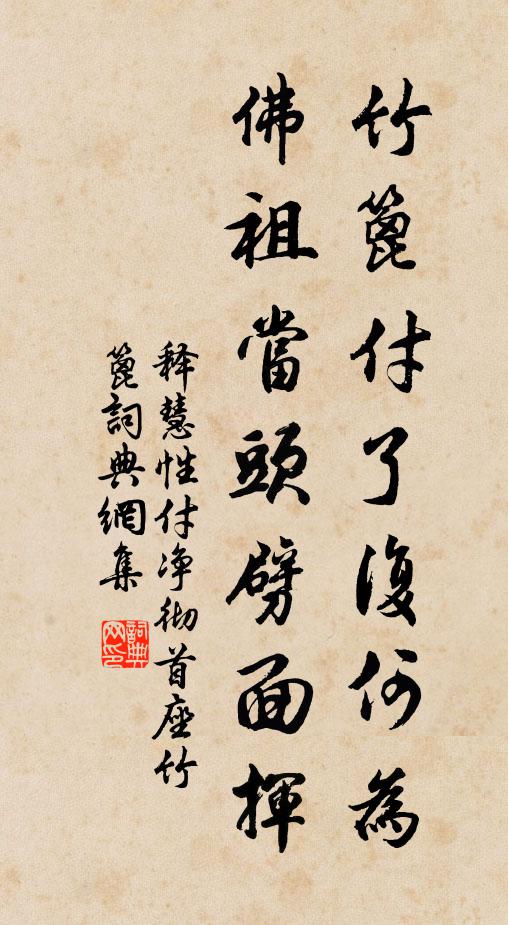 竹篦付了復何為
佛祖當頭劈面揮
释慧性付净彻首座竹
篦詞典網集
詞典
网印